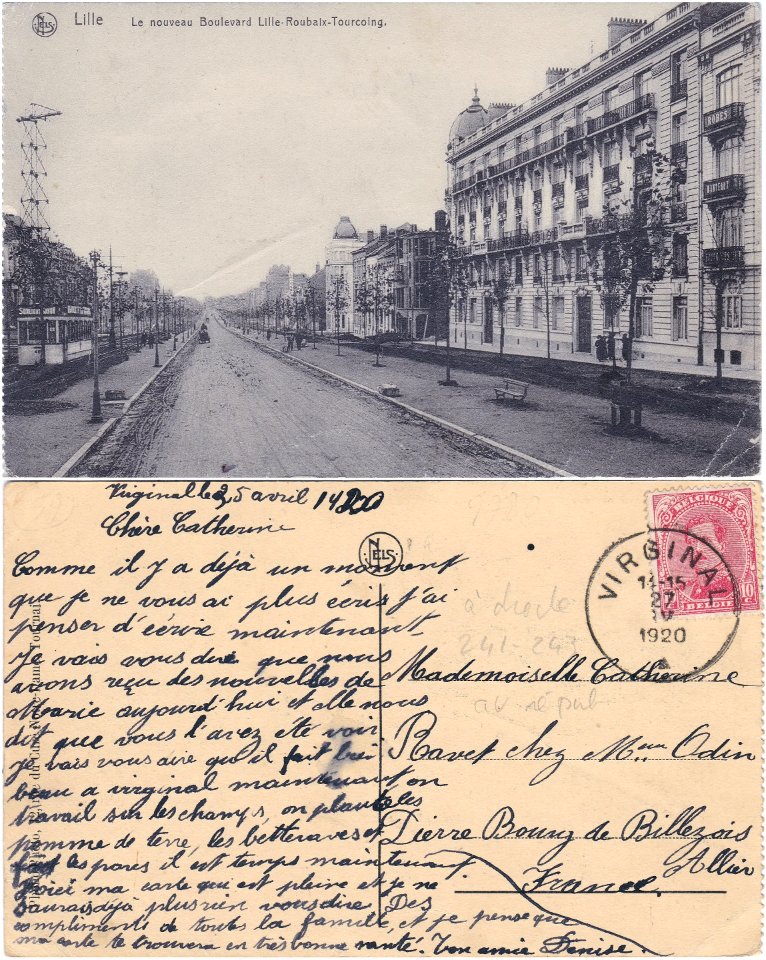 NELS
Lille
Le nouveau Boulevard Lille-Roubaix-Tourcoing.
ROBES
MANTEAUX
Virginal le 25 avril 1920
Chère Catherine
Comme il y a déjà un moment
que je ne vous ai plus écris j'ai
penser d'écrire maintenant.
Je vais vous dire que nous
avons reçu des nouvelles de
Marie aujourd'hui et elle nous
dit que vous l'avez été voir
je vais vous dire qu'il fait bien
beau a virginal maintenant on
travail sur les champs, on plante les
pomme de terre, les betteraves et
les pores il est temps maintenant.
Voici ma carte qui est pleine et je ne
saurais déjà plus rien vous dire Des
compliments de toutes la famille, et je pense que
ma carte te trouvera en très bonne santé. Ton amie Denise.
NELS
à droite
241-247
au répub
BELGIQUE
10c
BELGIE
VIRGINAL
14-15
27
IV
1920
Mademoiselle Catherine
Ravet chez Mme Odin
Pierre Bourg de Billezois
Allier
France.